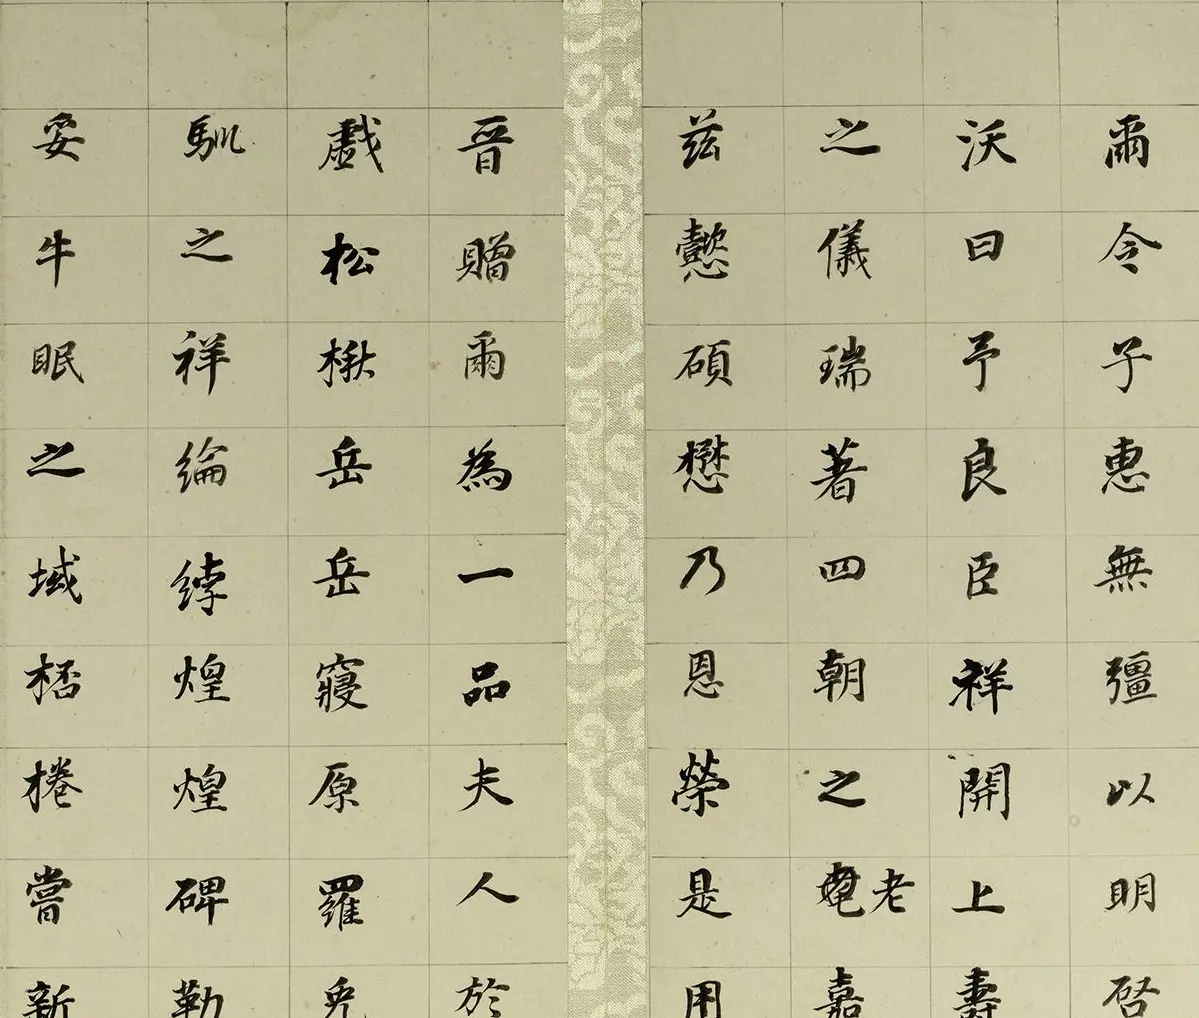 爾令子惠無彊以明啓
沃曰予良臣祥開上壽
之儀瑞著四朝之老嘉
茲懿碩懋乃恩榮是用
晉贈爾為一品夫人於
戲松楸岳岳寢原羅
馴之祥綸綍煌煌碑勒
妥牛眠之域桮棬嘗新